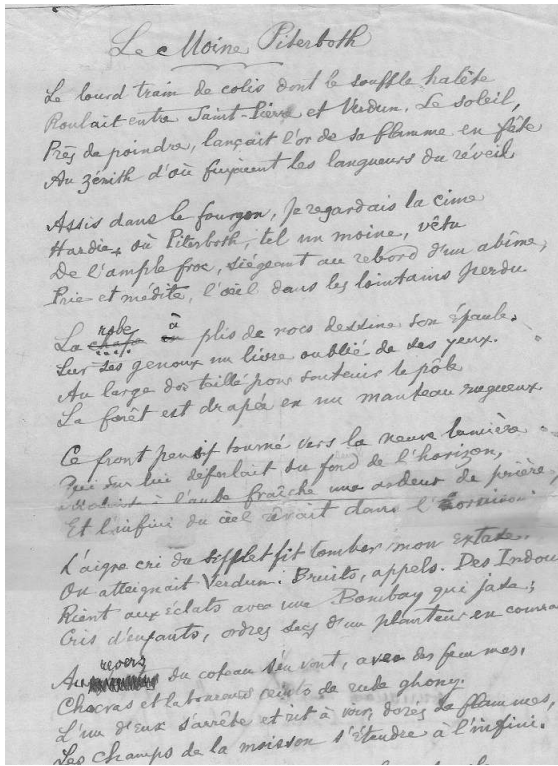 Le Moine Piterboth
Le lourd train de colis dont le souffle halète
Roulait entre Saint-Pierre et Verdun. Le soleil,
Près de poindre, lançait l'or de sa flamme en fête
Au zénith d'où fuyaient les langueurs du réveil
Assis dans le fourgon, je regardais la cime
Hardie, où Piterboth, tel un moine, vêtu
De l'ample froc, siégeant au rebord d'un abîme,
Prie et médite, l'œil dans les lointains perdu
La robe à plis de rocs dessine son épaule.
Sur ses genoux un livre oublié de ses yeux.
Au large dos taillé pour soutenir le pôle
La forêt est drapée en un manteau rugueux.
Ce front pensif tourné vers la neuve lumière
Qui sur lui déferlait du fond de l'horizon,
à l'aube fraîche une ardeur de prière,
Et l'infini du ciel rêvait dans l'
L'aigre cri du sifflet fit tomber mon extase.
On atteignait Verdun. Bruits, appels. Des Indous
Rient aux éclats avec une Bombay qui jase;
Cris d'enfants, ordres secs d'un planteur en
Au revers du coteau s'en vont, avec des femmes,
Chocras et laboureurs ceints de rude ghony.
L'un d'eux s'arrête et rit à voir, dorés de flammes,
Les champs de la moisson s'étendre à l'infini.